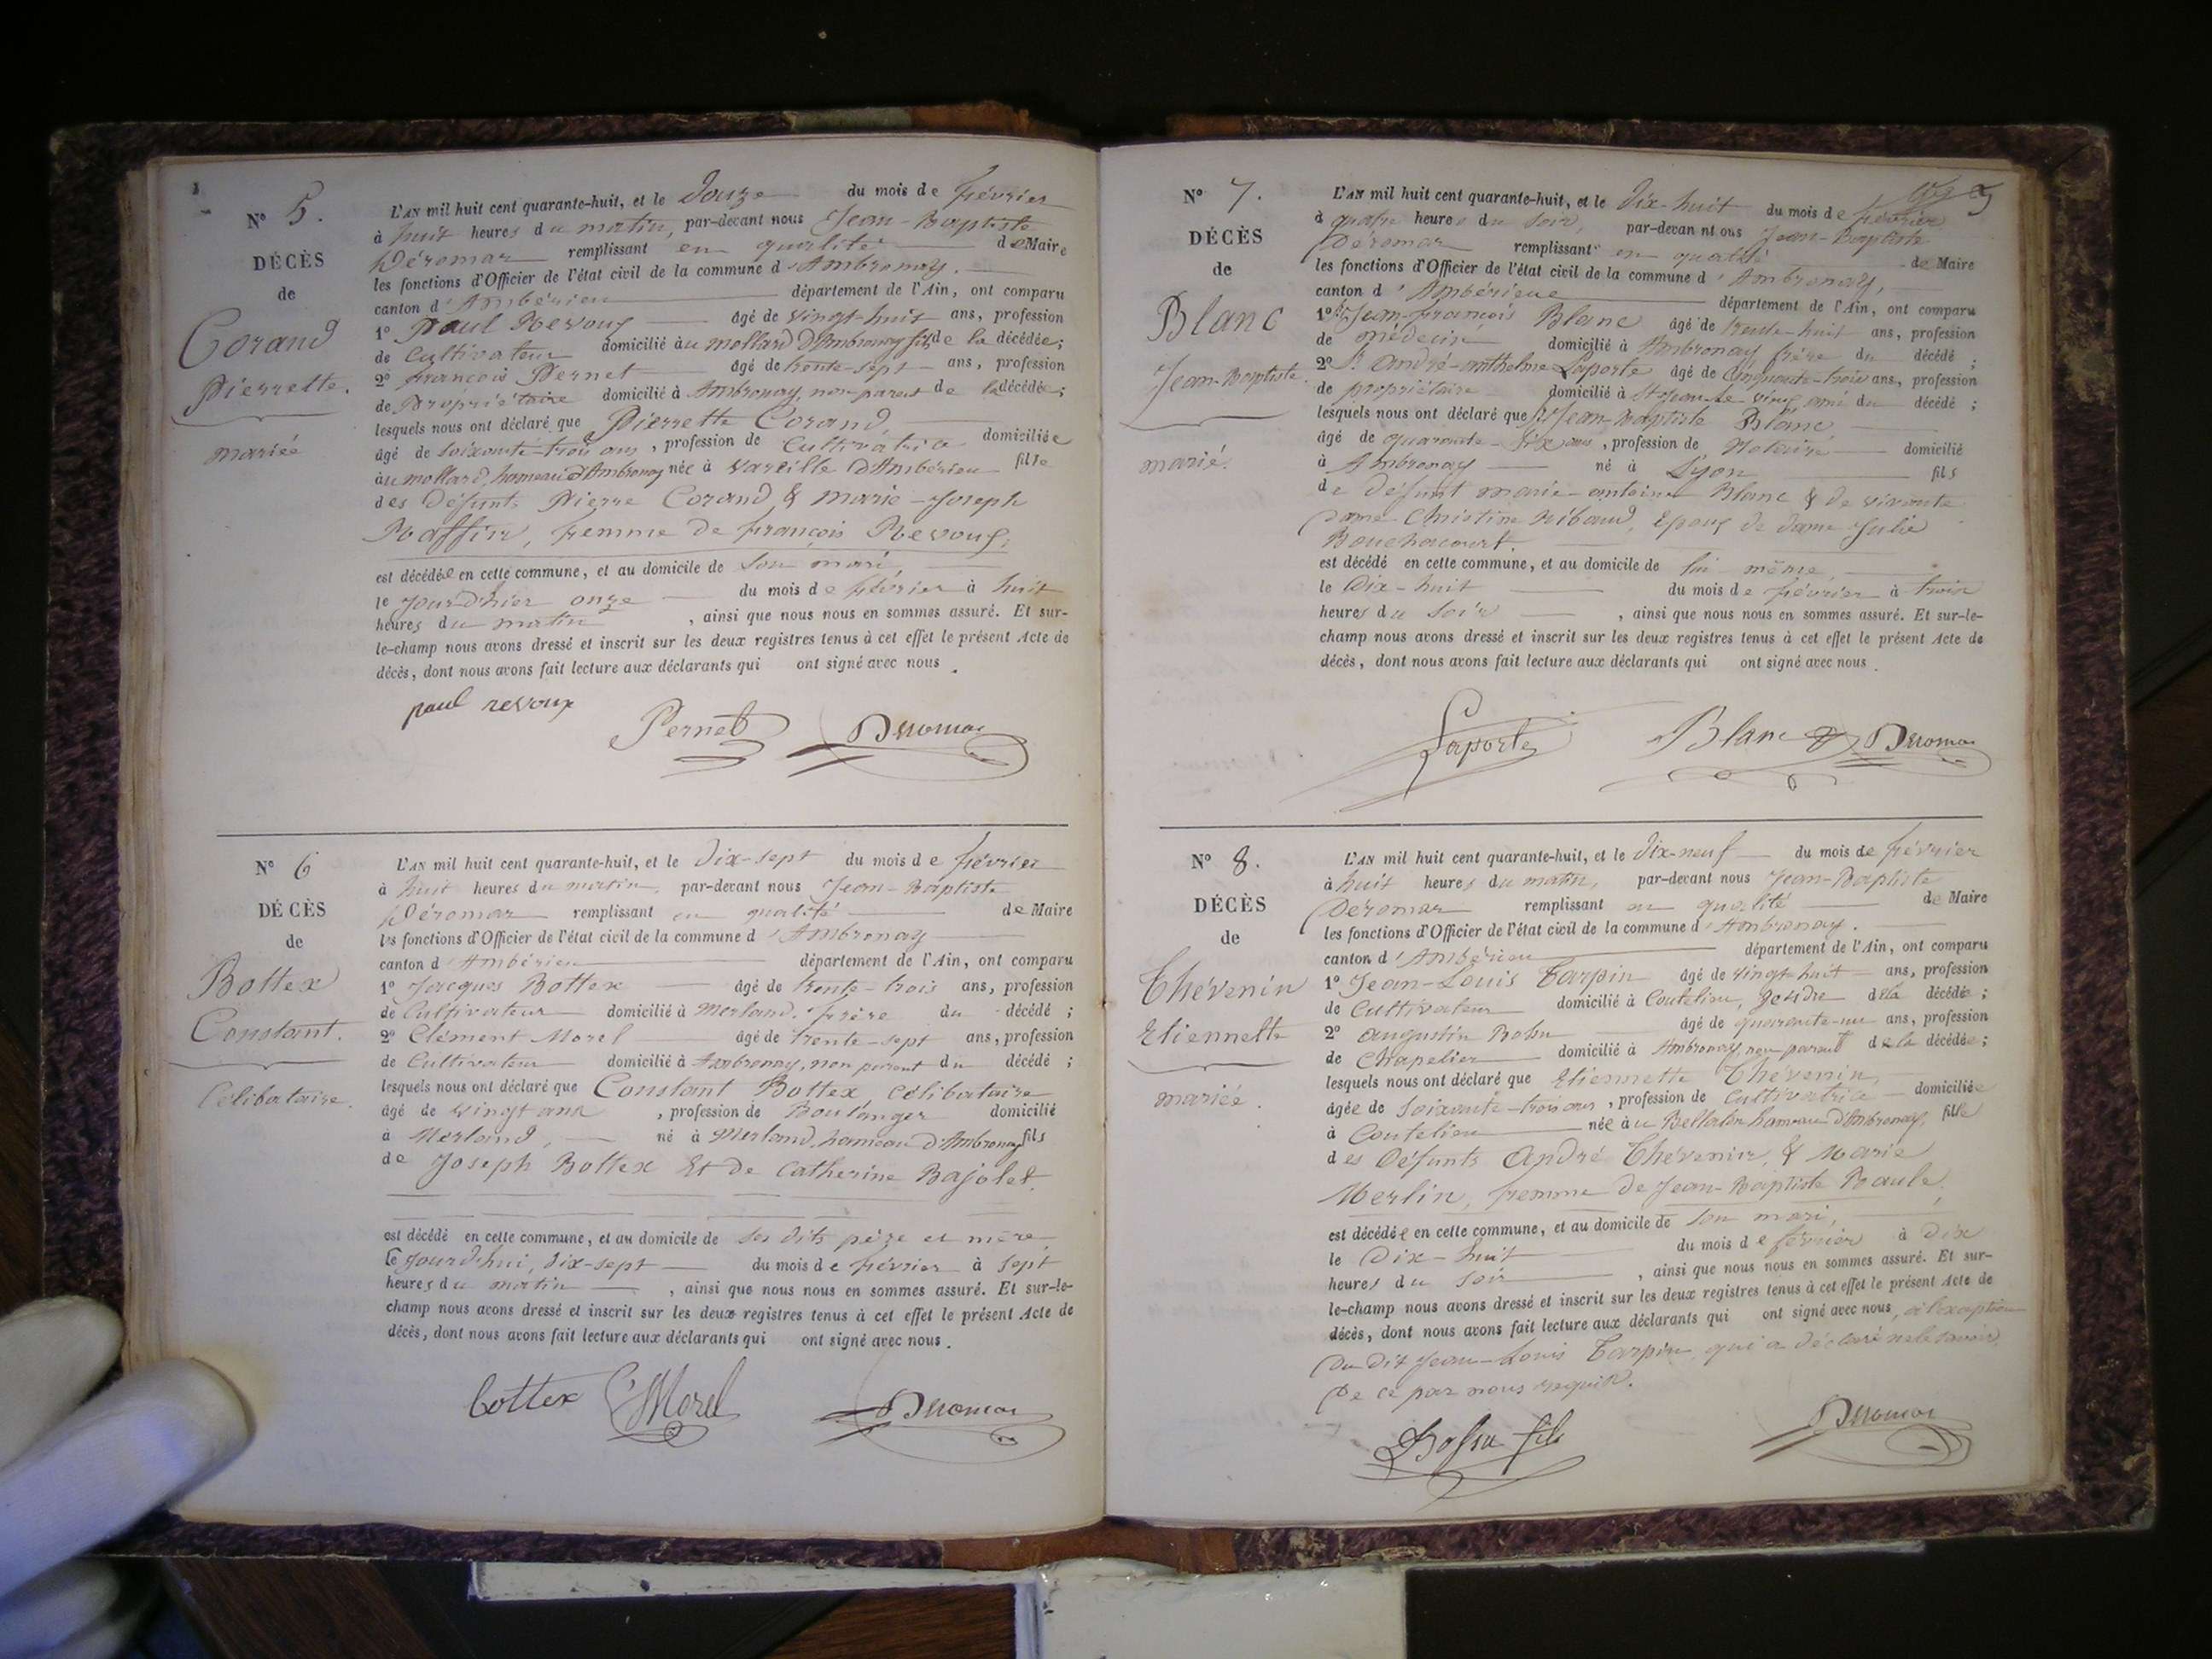 N° 5.
DÉCÈS
de
Corand
Pierrette.
mariée
L'AN mil huit cent quarante-huit, et le Douze du mois de février
à huit heures du matin, par-devant nous Jean-Baptiste
Déromas remplissant en qualité de Maire
les fonctions d'Officier de l'état civil de la commune d'Ambronay.
canton d'Ambérieu département de l'Ain, ont comparu
1° Paul Revoux âgé de vingt-huit ans, profession
de Cultivateur domicilié au mollard d'Ambronay fils de la décédée;
2° François Pernet âgé de trente-sept ans, profession
de Propriétaire domicilié à Ambronay, non parent de la décédée;
lesquels nous ont déclaré que Pierrette Corand,
âgé de soixante-trois ans, profession de Cultivatrice domiciliée
au mollard, hameau d'Ambronay née à Vareille d'Ambérieu fille
des défunts Pierre Corand & marie-Joseph
Raffin, femme de françois Revoux;
est décédée en cette commune, et au domicile de son mari,
le jour d'hier onze du mois de février à huit
heures du matin, ainsi que nous nous en sommes assuré. Et sur-
le-champ nous avons dressé et inscrit sur les deux registres tenus à cet effet le présent Acte de
décès, dont nous avons fait lecture aux déclarants qui ont signé avec nous.
paul revoux Pernet Deromas
N° 6
DÉCÈS
de
Bottex
Constant.
Célibataire.
L'AN mil huit cent quarante-huit, et le dix-sept du mois de février
à huit heures du matin, par-devant nous Jean-Baptiste
Déromas remplissant en qualité de Maire
les fonctions d'Officier de l'état civil de la commune d'Ambronay
canton d'Ambérieu département de l'Ain, ont comparu
1° Jacques Bottex âgé de trente-trois ans, profession
de Cultivateur domicilié à Merland. frère du décédé;
2° Clément Morel âgé de trente-sept ans, profession
de Cultivateur domicilié à Ambronay, non parent du décédé;
lesquels nous ont déclaré que Constant Bottex, célibataire
âgé de vingt ans, profession de Boulanger domicilié
à Merland, né à Merland, hameau d'Ambronay fils
de Joseph Bottex Et de Catherine Bajolet.
est décédé en cette commune, et au domicile de ses dits père et mère
le Jourd'hui, dix-sept du mois de février à sept
heures du matin, ainsi que nous nous en sommes assuré. Et sur-le-
champ nous avons dressé et inscrit sur les deux registres tenus à cet effet le présent Acte de
décès, dont nous avons fait lecture aux déclarants qui ont signé avec nous.
bottex C Morel Deromas
N° 7.
DÉCÈS
de
Blanc
Jean-Baptiste.
marié.
L'AN mil huit cent quarante-huit, et le Dix-huit du mois de février
à quatre heures du soir, par-devan nt ous Jean-Baptiste
Déromas remplissant en qualité de Maire
les fonctions d'Officier de l'état civil de la commune d'Ambronay,
canton d'Ambérieux département de l'Ain, ont comparu
1° Sr Jean-François Blanc âgé de trente-huit ans, profession
de médecin domicilié à Ambronay frère du décédé;
2° Sr André-anthelme Laporte âgé de Cinquante-trois ans, profession
de propriétaire domicilié à St Jean-le vieux ami du décédé;
lesquels nous ont déclaré que Sr Jean-Baptiste Blanc
âgé de quarante-six ans, profession de Notaire domicilié
à Ambronay né à Lyon fils
de défunt marie-antoine Blanc & de vivante
Dame Christine Ribaud, Epoux de dame Julie
Bouchacourt.
est décédé en cette commune, et au domicile de lui même
le Dix-huit du mois de février à trois
heures du soir, ainsi que nous nous en sommes assuré. Et sur-le-
champ nous avons dressé et inscrit sur les deux registres tenus à cet effet le présent Acte de
décès, dont nous avons fait lecture aux déclarants qui ont signé avec nous.
Laporte Blanc Deromas
N° 8.
DÉCÈS
de
Thévenin
Etiennette
mariée.
L'AN mil huit cent quarante-huit, et le Dix-neuf du mois de février
à huit heures du matin, par-devant nous Jean-Baptiste
Déromas remplissant en qualité de Maire
les fonctions d'Officier de l'état civil de la commune d'Ambronay.
canton d'Ambérieu département de l'Ain, ont comparu
1° Jean-Louis Tarpin âgé de vingt huit ans, profession
de Cultivateur domicilié à Coutelieu, gendre de la décédée;
2° augustin âgé de quarante-un ans, profession
de Chapelier domicilié à Ambronay, non parent de la décédée;
lesquels nous ont déclaré que Etiennette Thévenin,
âgée de soixante-trois ans, profession de Cultivatrice domiciliée
à Coutelieu née au hameau d'Ambronay, fille
des Défunts André Thévenin & Marie
Merlin, femme de Jean-Baptiste Baule,
est décédée en cette commune, et au domicile de son mari,
le Dix-huit du mois de février à dix
heures du soir, ainsi que nous nous en sommes assuré. Et sur-
le-champ nous avons dressé et inscrit sur les deux registres tenus à cet effet le présent Acte de
décès, dont nous avons fait lecture aux déclarants qui ont signé avec nous, à l'exception
du dit Jean-Louis Tarpin qui a déclaré ne le savoir
De ce par nous requis.
fils Deromas